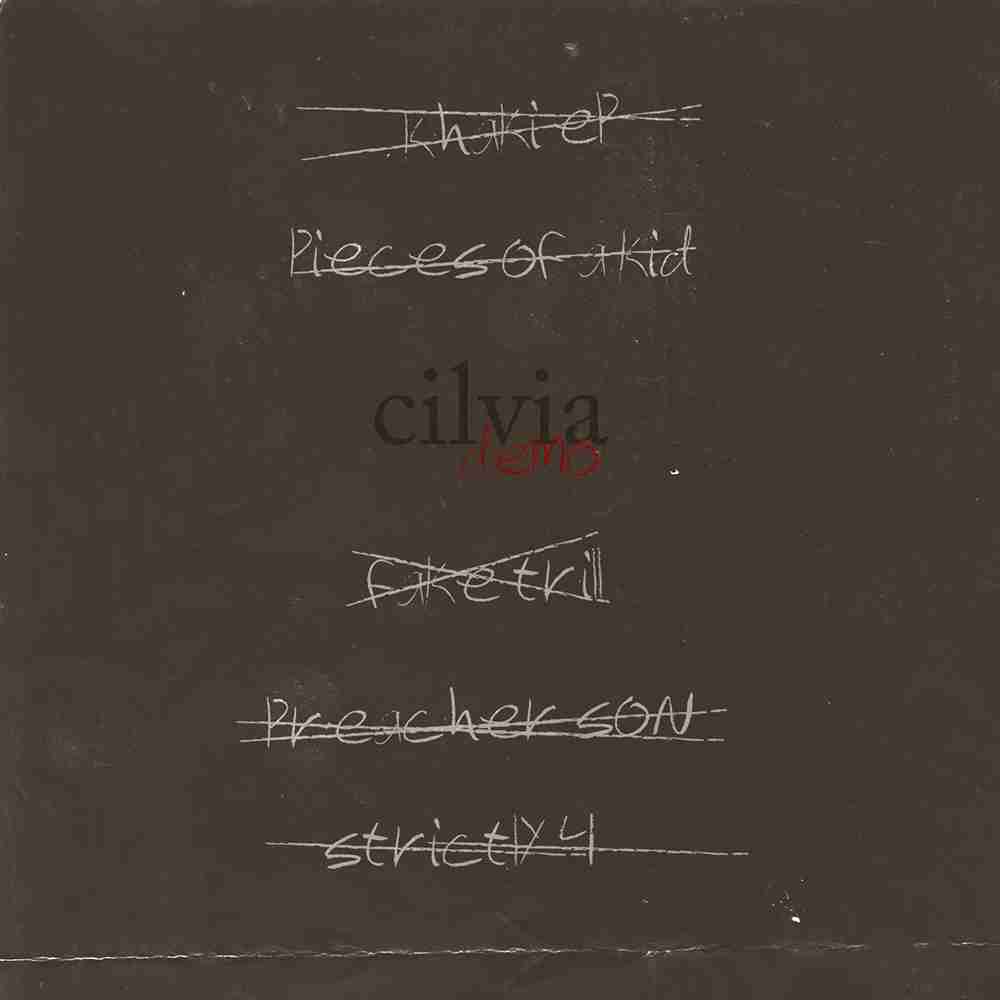 khaki eP
Pieces of a kid
cilvia
demo
fake trill
Preacher SON
strictly 4